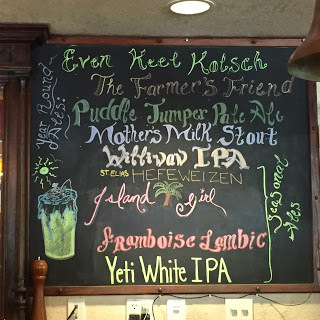 Even Keel Kolsch
The Farmer's Friend
Puddle Jumper Pale Ale
Mother's Milk Stout
Williwaw IPA
ST. ELIAS HEFEWEIZEN
Island Girl
Framboise Lambic
Yeti White IPA
Year Round
Ales:
Seasonal
Ales